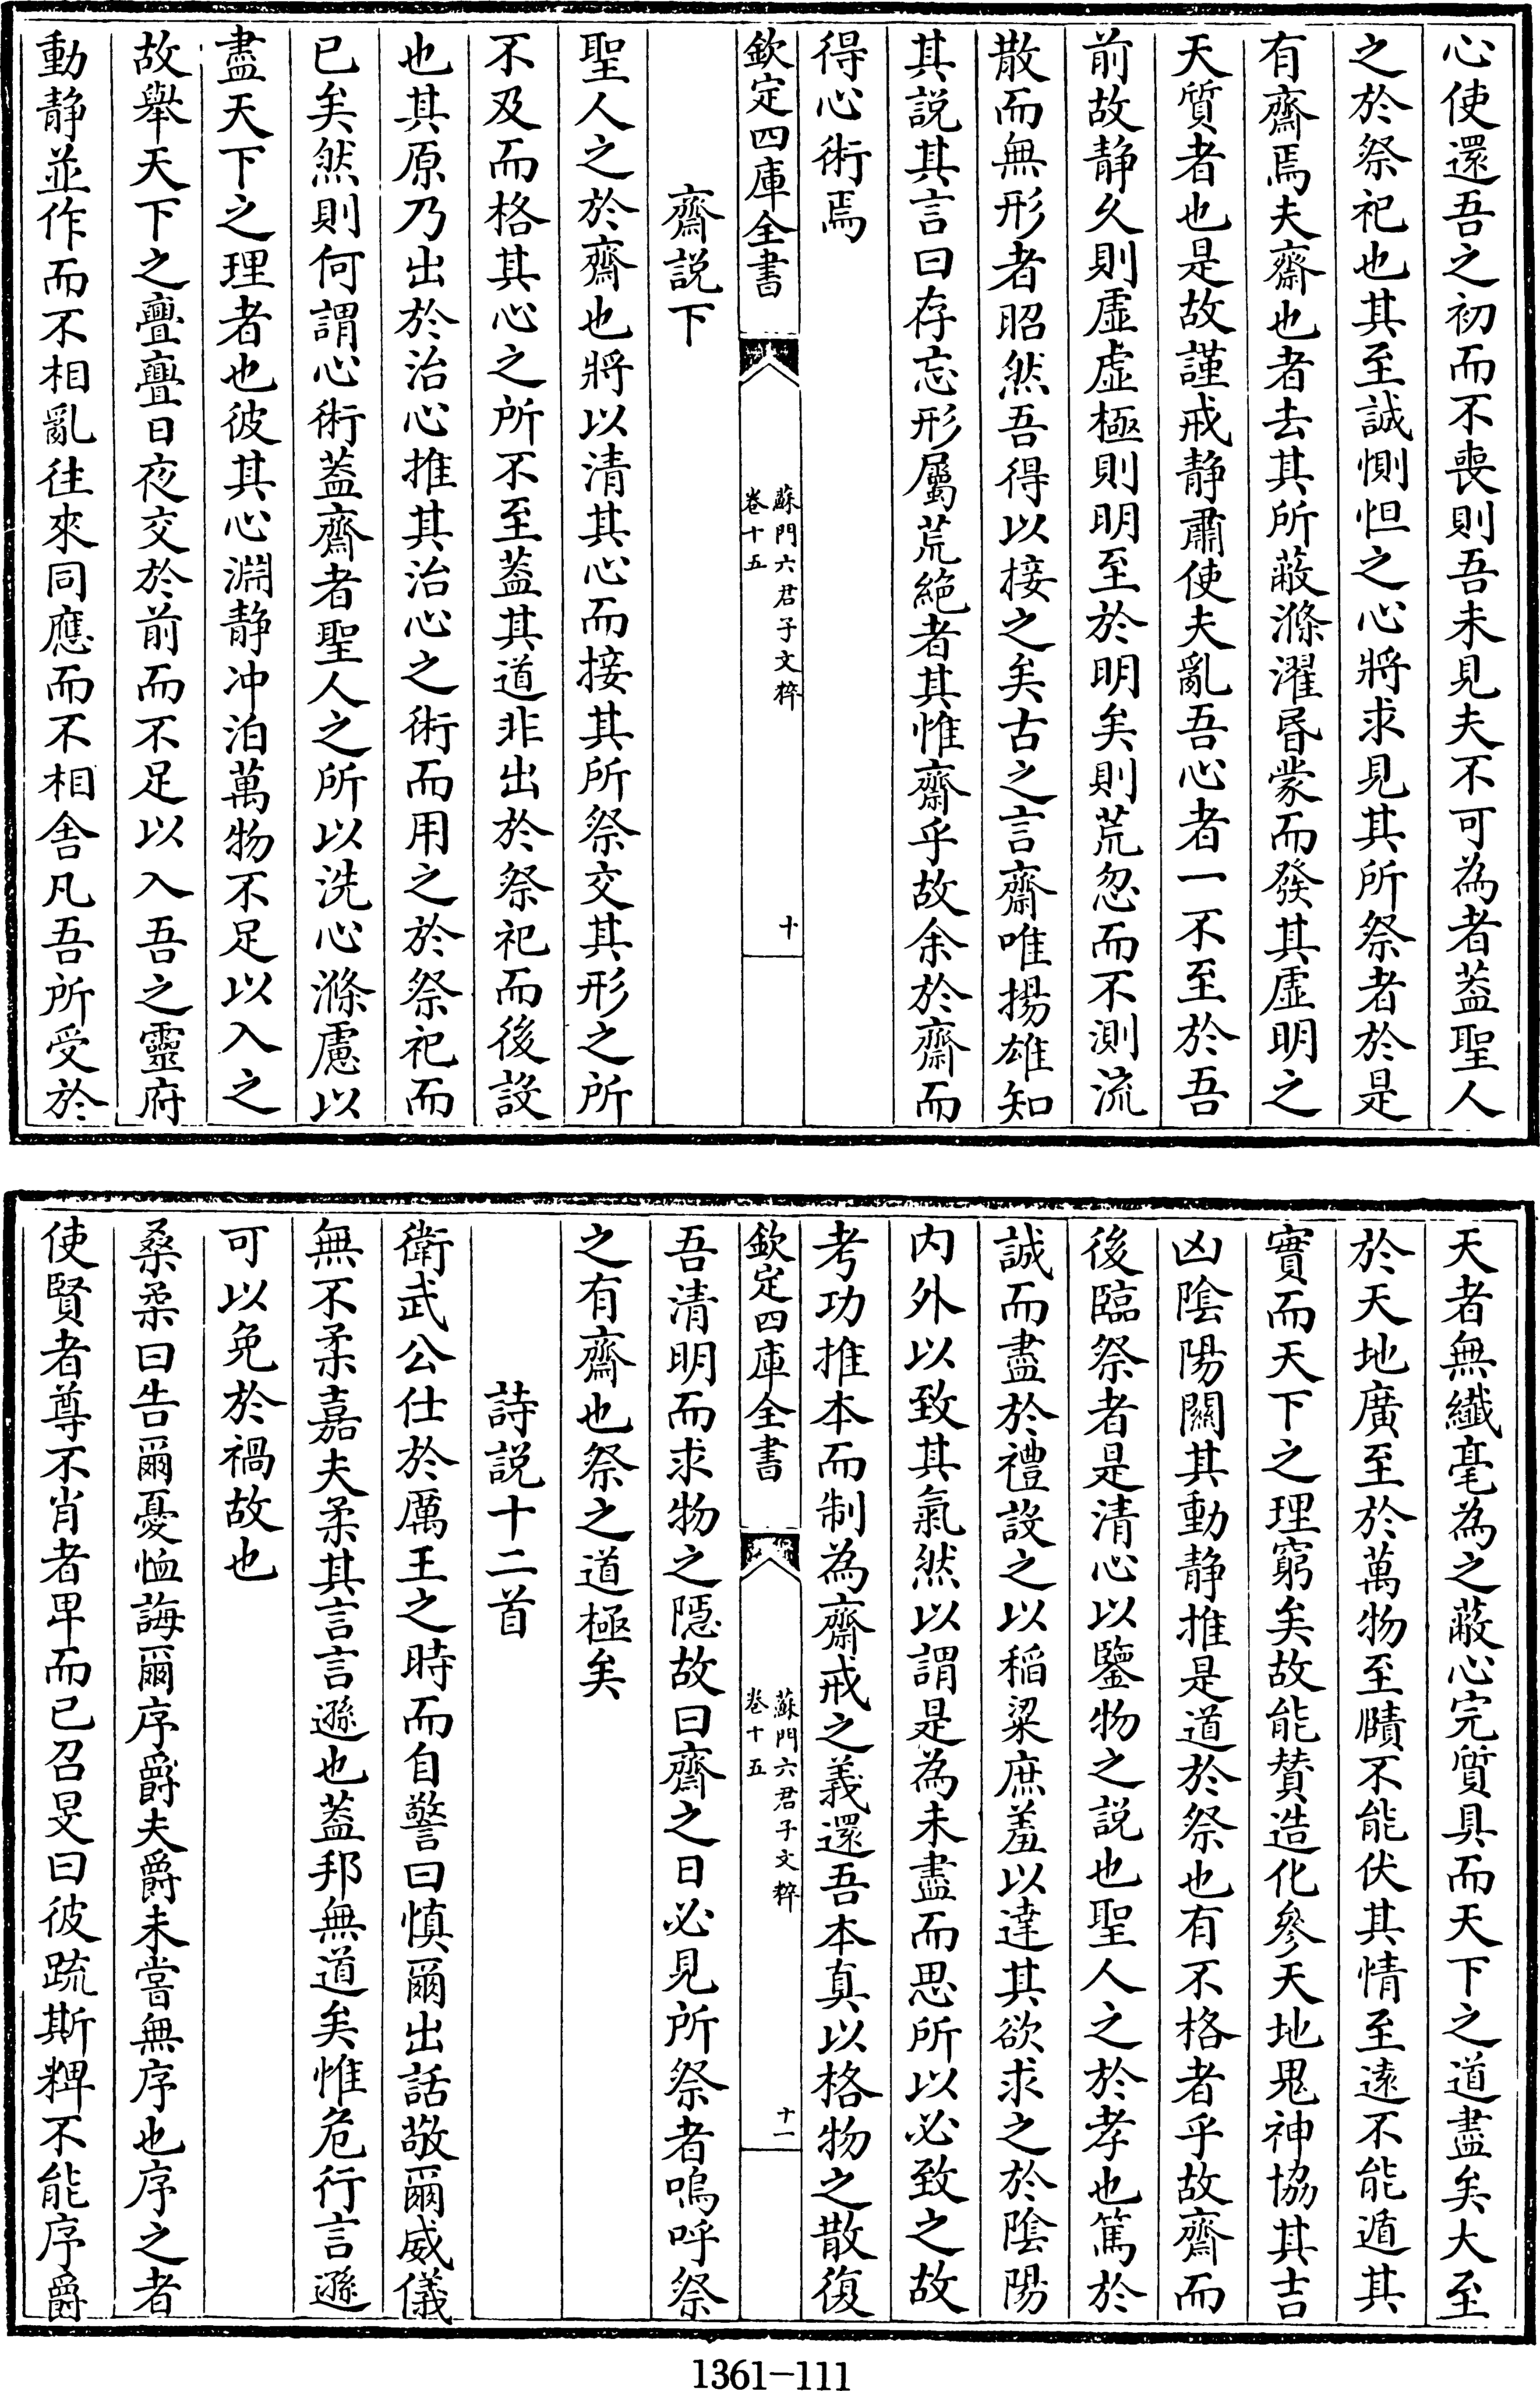 心使還吾之初而不喪則吾未見夫不可為者蓋聖人
之於祭祀也其至誠惻怛之心將求見其所祭者於是
有齋焉夫齋也者去其所蔽滌濯昬蒙而發其虛明之
天質者也是故謹戒静肅使夫亂吾心者一不至於吾
前故静久則虛虛極則明至於明矣則荒忽而不測流
散而無形者昭然吾得以接之矣古之言齋唯揚雄知
其說其言曰存忘形屬荒絶者其惟齋乎故余於齋而
得心術焉
欽定四庫全書
蘇門六君子文粹
卷十五
十
齋説下
聖人之於齋也將以清其心而接其所祭交其形之所
不及而格其心之所不至蓋其道非出於祭祀而後設
也其原乃出於治心推其治心之術而用之於祭祀而
已矣然則何謂心術蓋齋者聖人之所以洗心滌慮以
盡天下之理者也彼其心淵静冲泊萬物不足以入之
故舉天下之亹亹日夜交於前而不足以入吾之靈府
動静並作而不相亂往來同應而不相舍凡吾所受於
天者無纖毫為之蔽心完質具而天下之道盡矣大至
於天地廣至於萬物至賾不能伏其情至逺不能遁其
實而天下之理窮矣故能賛造化參天地鬼神協其吉
凶陰陽闗其動静推是道於祭也有不格者乎故齋而
後臨祭者是清心以鑒物之説也聖人之於孝也篤於
誠而盡於禮設之以稻粱庶羞以達其欲求之於陰陽
内外以致其氣然以謂是為未盡而思所以必致之故
考功推本而制為齋戒之義還吾本真以格物之散復
欽定四庫全書
蘇門六君子文粹
卷十五
十一
吾清明而求物之隱故曰齋之日必見所祭者嗚呼祭
之有齋也祭之道極矣
詩説十二首
衛武公仕於厲王之時而自警曰慎爾出話敬爾威儀
無不柔嘉夫柔其言言遜也蓋邦無道矣惟危行言遜
可以免於禍故也
桑柔曰告爾憂恤誨爾序爵夫爵未嘗無序也序之者
使賢者尊不肖者卑而已召旻曰彼疏斯粺不能序爵
1361-111